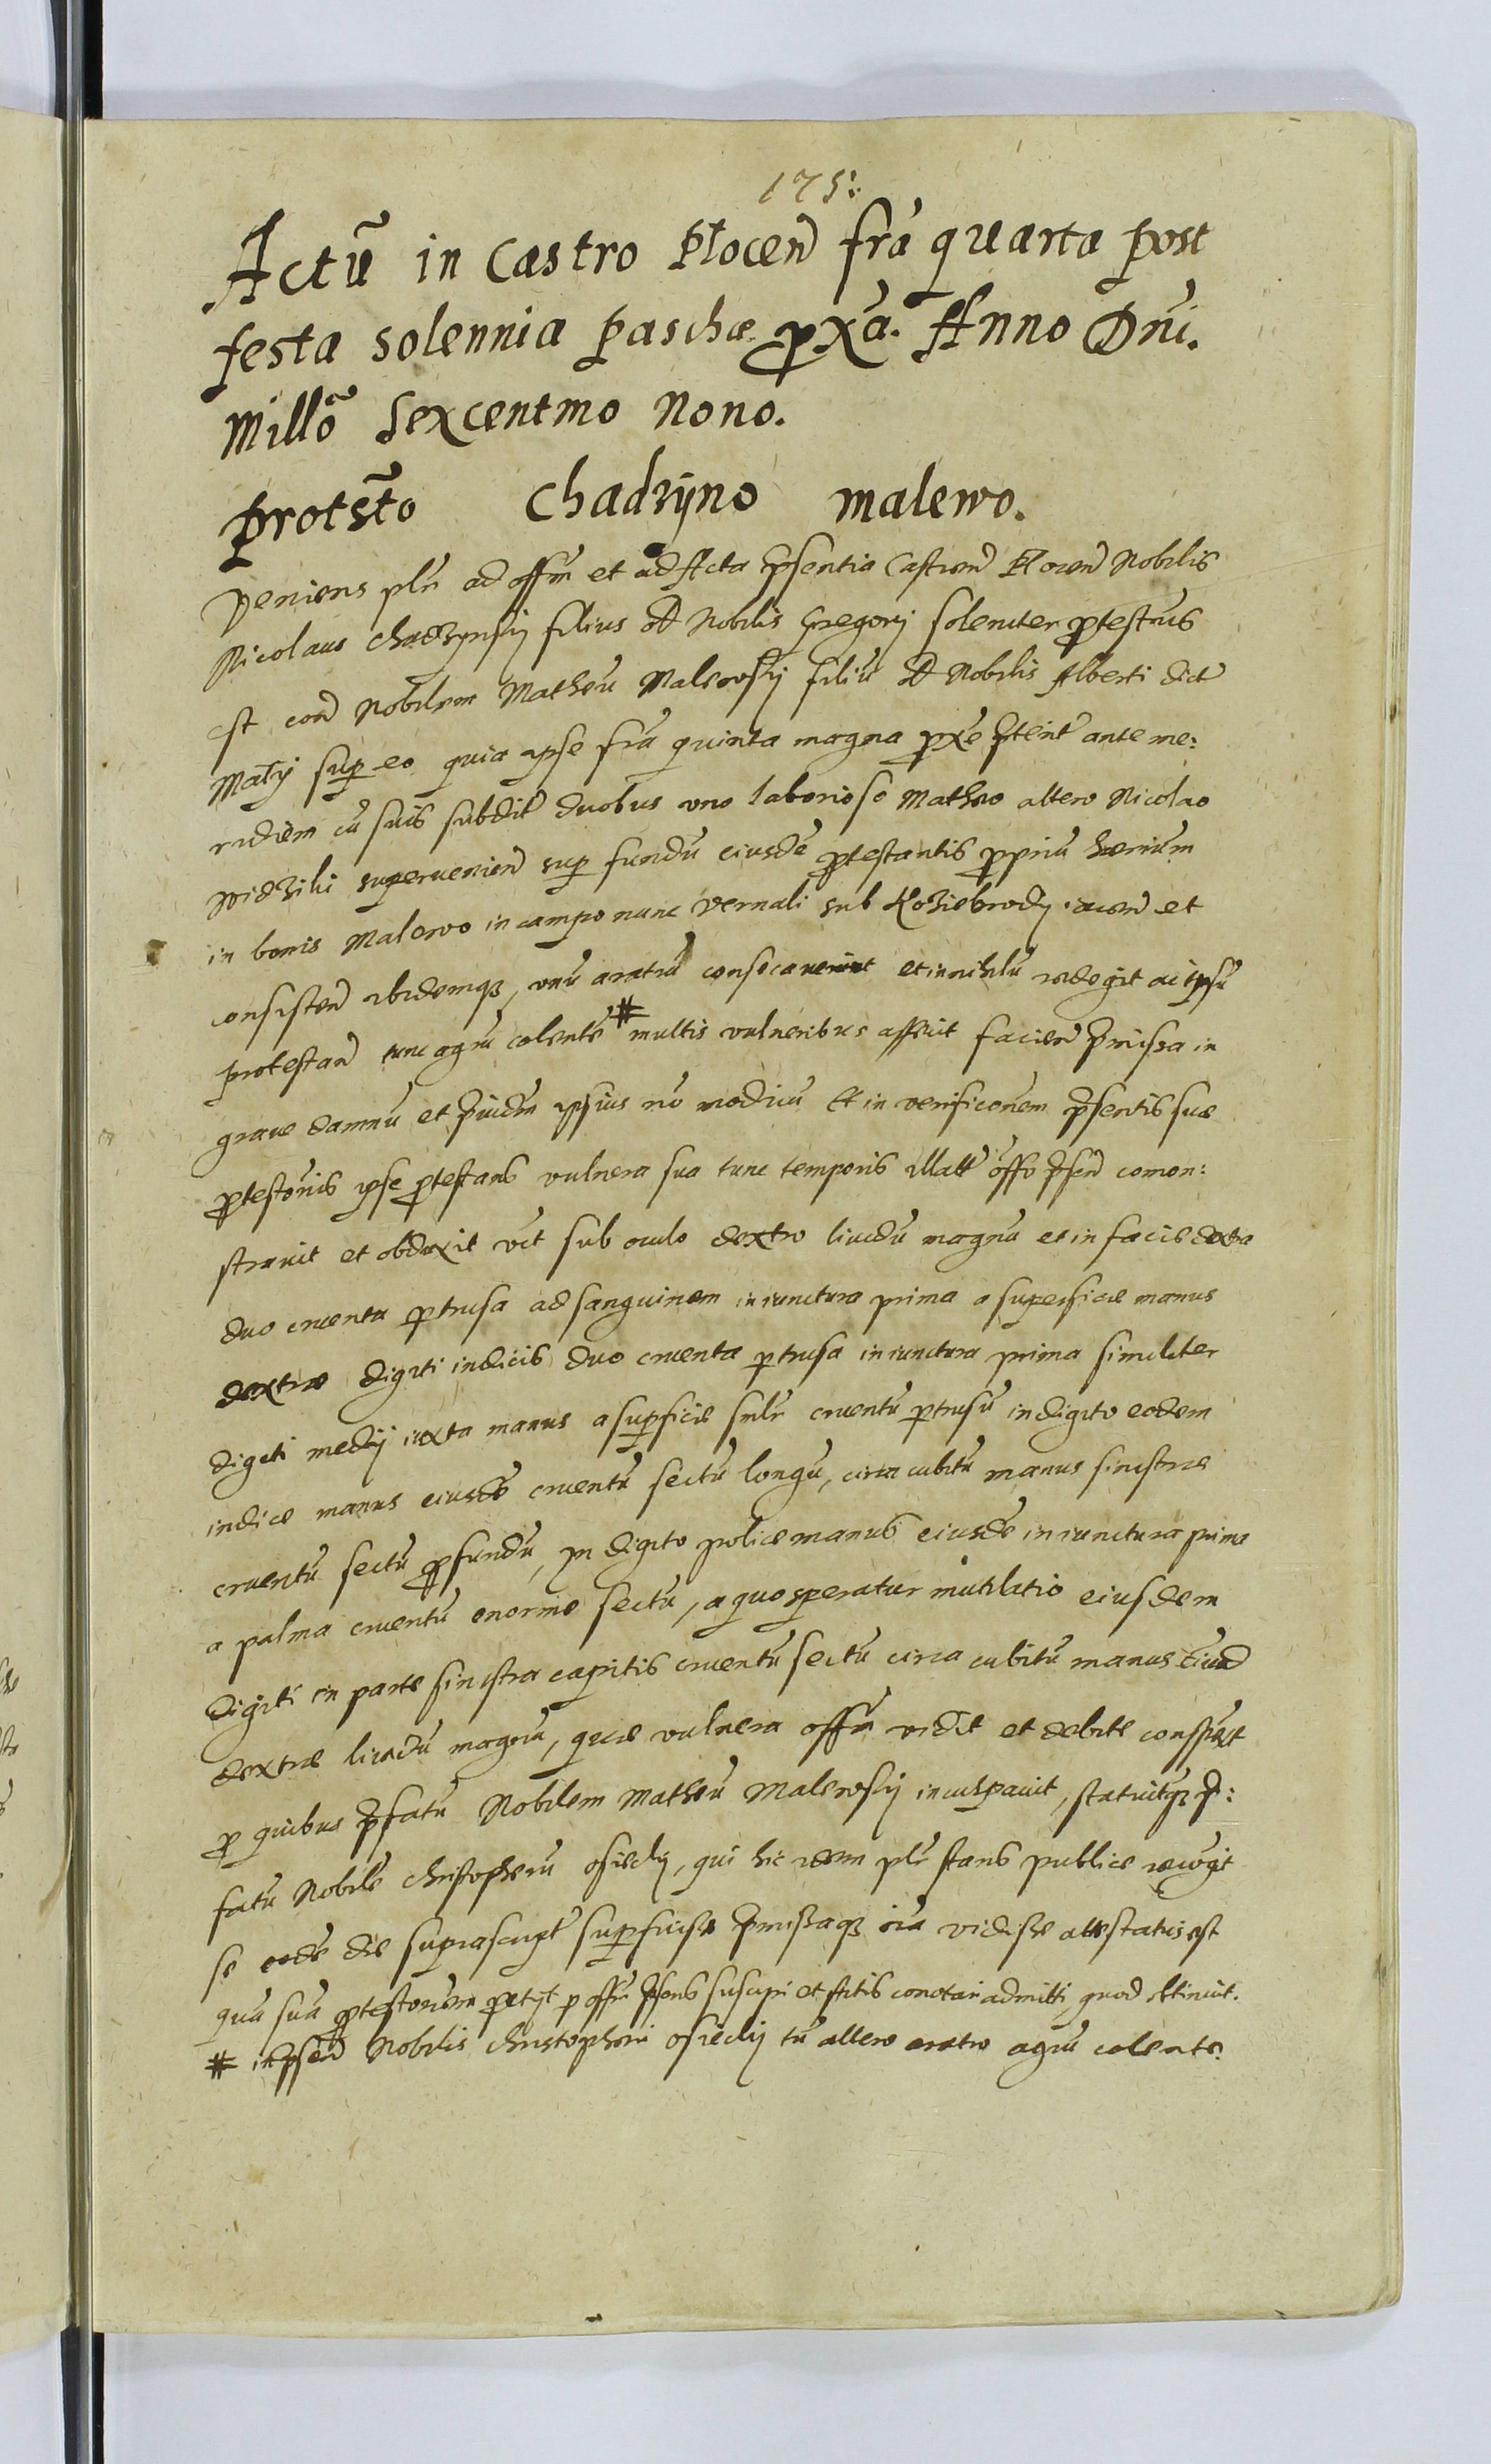 175:
Actū in Castro Plocen̄ frā quarta post
festa solennia Paschæ px̄a. Anno Dn̄i.
Millō Sexcentmo Nono.
Protst̄o Chadzÿno Malewo.
Veniens pl̄r ad off̄m et ad Acta p̄sentia Castren̄ Plocen̄ Nobilis
Nicolaus Chadzynsky filius Nobilis Gregorij solenniter protestatus
est con̄ Nobilem Matheū Malewsky filiū Nobilis Alberti dict
Małÿ super eo quia ipse frā quinta magna px̄e p̄terit ante me:
ridiem cū suis subdit duobus uno laborioso Matheo altero Nicolao
supervenien̄ sup fundū eiusdē protestantis propriū
in bonis Malewo in campo nunc vernali sub Koziebrody iacen̄ et
consisten̄ ibidemq, unū aratrū consecaverunt et in nihilū redegit ac ipsū
protestan̄ tunc agrū colentē # multis vulneribus affecit facien̄ p̄missa in
grave damnū et p̄iudm ipsius nō modicū Et in verificōnem p̄sentis suæ
protestōnis ipse protestans vulnera sua tunc temporis illatt offo p̄sen̄ comon:
stravit et obduxit vt sub oculo dextro lividū magnū et in facie dextra
duo cruenta pertusa ad sanguinem in iunctura prima a superficie manus
dextræ digiti indicis duo cruenta pertusa in iunctura prima similiter
digiti medij iuxta manus a superficie simlr cruentū pertusū in digito eodem
indice manus eiusdē cruentū sectū longū, circa cubitū manus sinistræ
cruentū sectū profundū, in digito police manus eiusdē in iunctura prima
a palma cruentū enorme sectū, a quo speratur mutilatio eiusdem
digiti in parte sinistra capitis cruentū sectū circa cubitū manus eiusd
dextræ lividū magnū, quæ vulnera off̄m vidit et debite conspexit
pro quibus p̄fatū Nobilem Matheū Malewsky inculpavit, statuitq p̄:
fatū Nobilē Christopherū Osiecky, qui hic coram pl̄r stans publice recogit
se eodē die suprascript superfuisse p̄missaq oīa vidisse attestatus est
quā suā protestōnem petijt p off̄m p̄sens suscipi et Actis conotari admitti, quod obtinuit.
# in p̄sen̄ Nobilis Christopheri Osiecky tū altero aratro agrū colente.